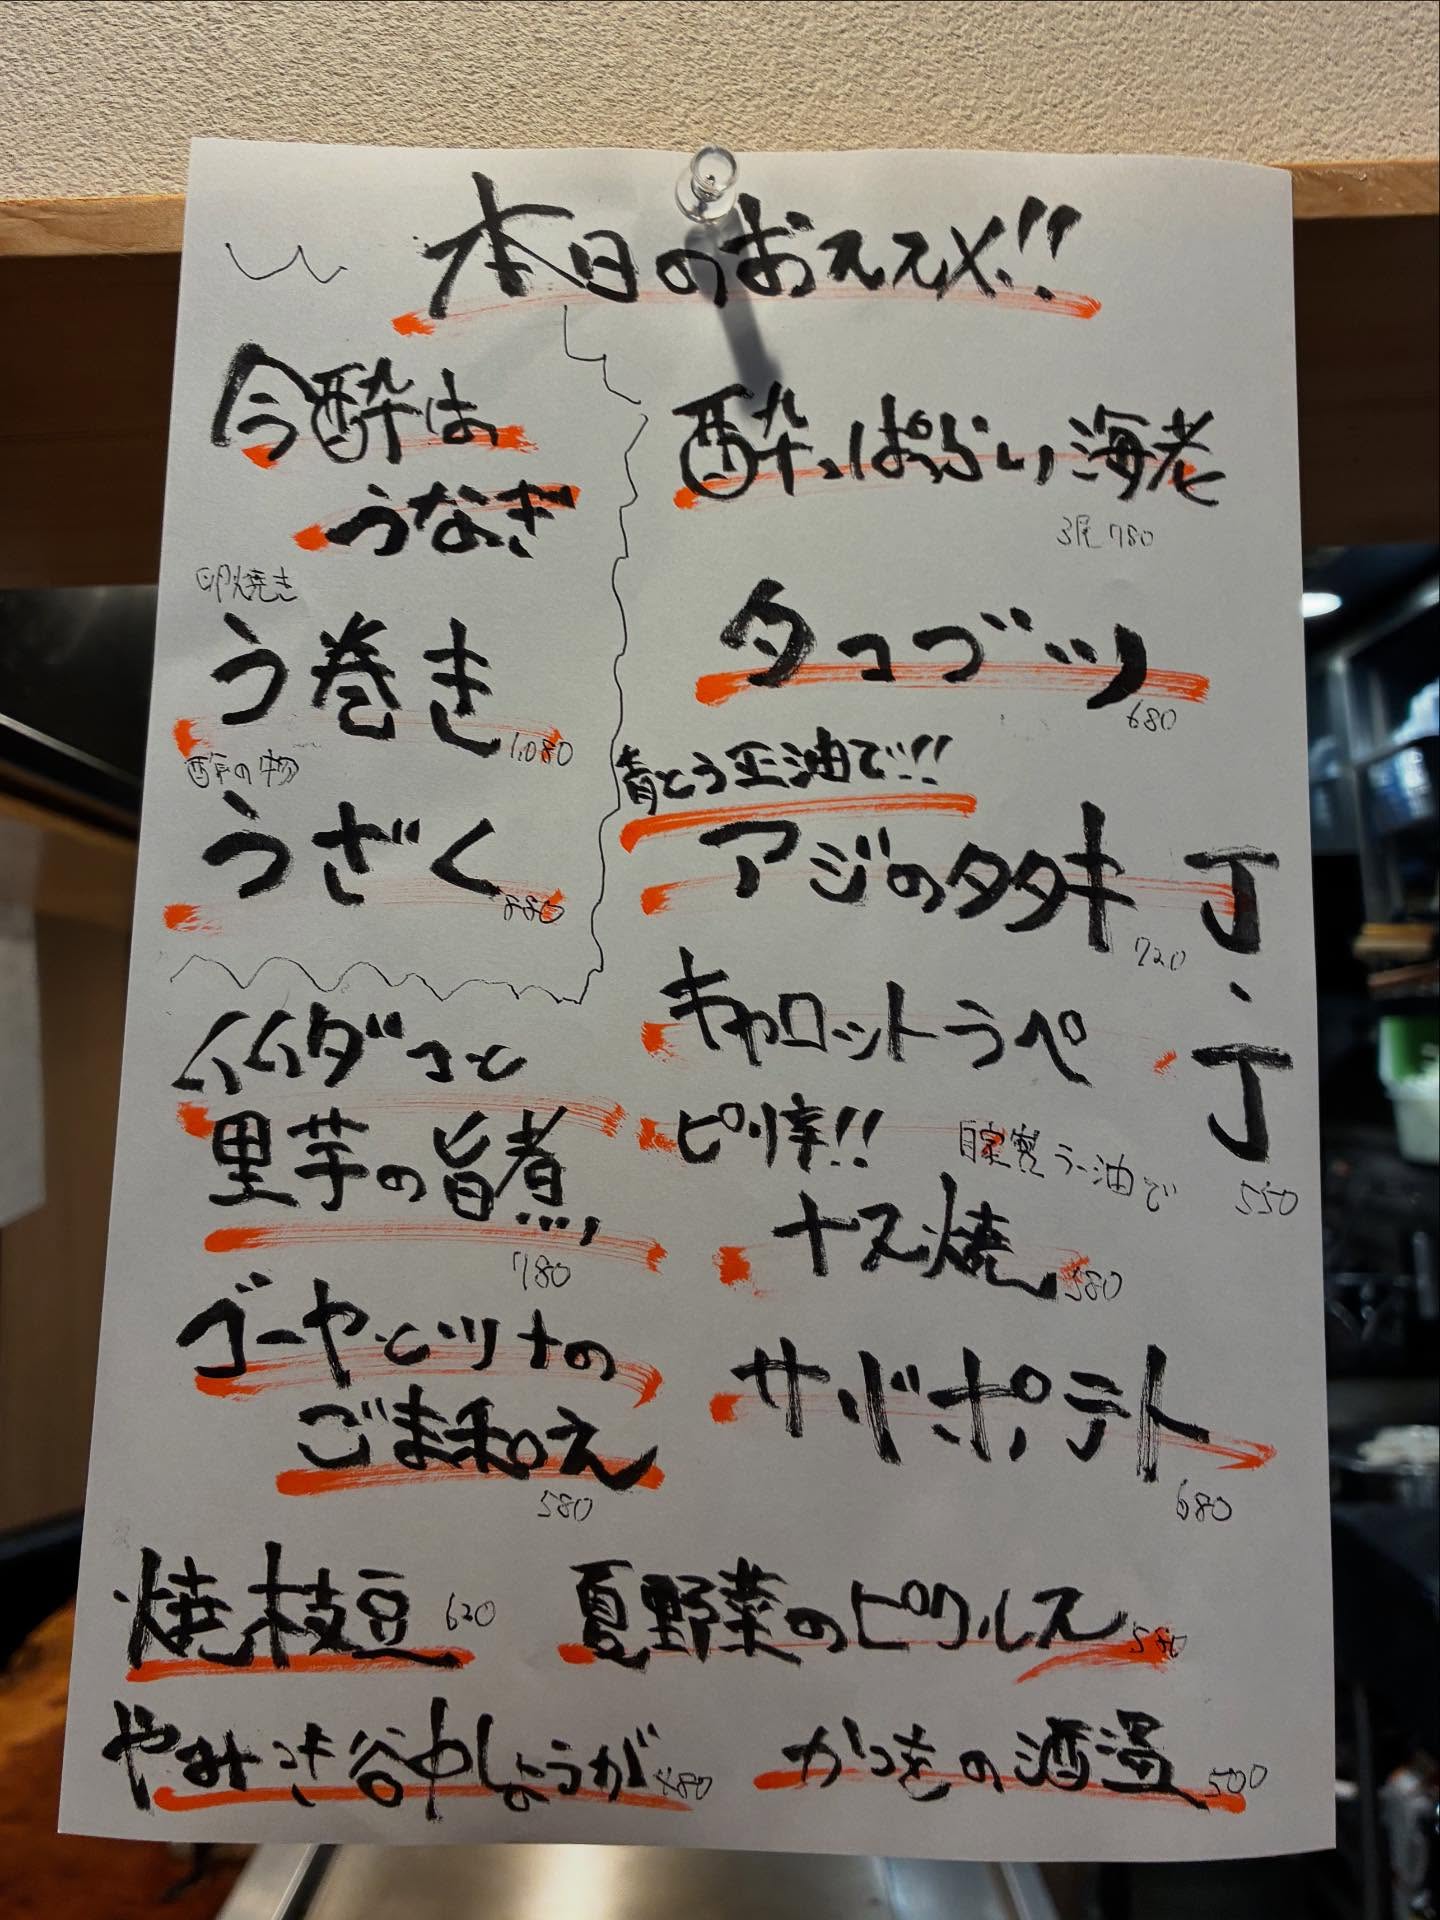 本日のおススメ!!
今酔は
うなぎ
卵焼き
う巻き
1,080
酢の物
うざく
880
酔っぱらい海老
3尾 780
タコブツ
680
青とう正油で!!
アジのタタキ
720
キャロットラペ
丁・丁
550
イイダコと
里芋の旨煮
780
ピリ辛!!
自家製ラー油で
ナス焼
580
ゴーヤとツナの
ごま和え
580
サバポテト
680
焼枝豆 620
夏野菜のピクルス
やみつき谷中しょうが 480
かつをの酒盗 500